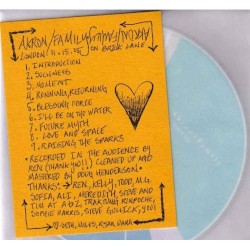 AKRON/FAMILY
LONDON 11.15.05 ON BRICK LANE
1. INTRODUCTION
2. SUCHNESS
3. MOMENT
4. RUNNING, RETURNING
5. BLESSING FORCE
6. I'LL BE ON THE WATER
7. FUTURE MYTH
8. LOVE AND SPACE
9. RAISING THE SPARKS
• RECORDED IN THE AUDIENCE BY
REN (THANK YOU!) CLEANED UP AND
MASTERED BY DOUG HENDERSON •
THANKS: → REN, KELLY, TODD, M.G.
SOFIA, ALI, MEREDITH, STEVE AND
TIM AT ADZ, TRAKTUNG RINPOCHE,
SOPHIE HARRIS, STEVE GULLICK, YOU!
SETH, MILES, RYAN, DANA